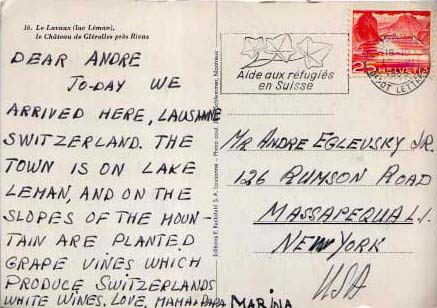 16. Le Lavaux (lac Léman),
le Château de Glérolles près Rivaz
DEAR ANDRE
TO-DAY WE
ARRIVED HERE, LAUSANNE
SWITZERLAND. THE
TOWN IS ON LAKE
LEMAN, AND ON THE
SLOPES OF THE MOUN-
TAIN ARE PLANTED
GRAPE VINES WHICH
PRODUCE SWITZERLANDS
WHITE WINES. LOVE, MAMA PAPA MARINA
Aide aux réfugiés
en Suisse
25
MR ANDRE EGLEVSKY JR.
126 RUMSON ROAD
MASSAPEQUA L.I.
NEW YORK
USA